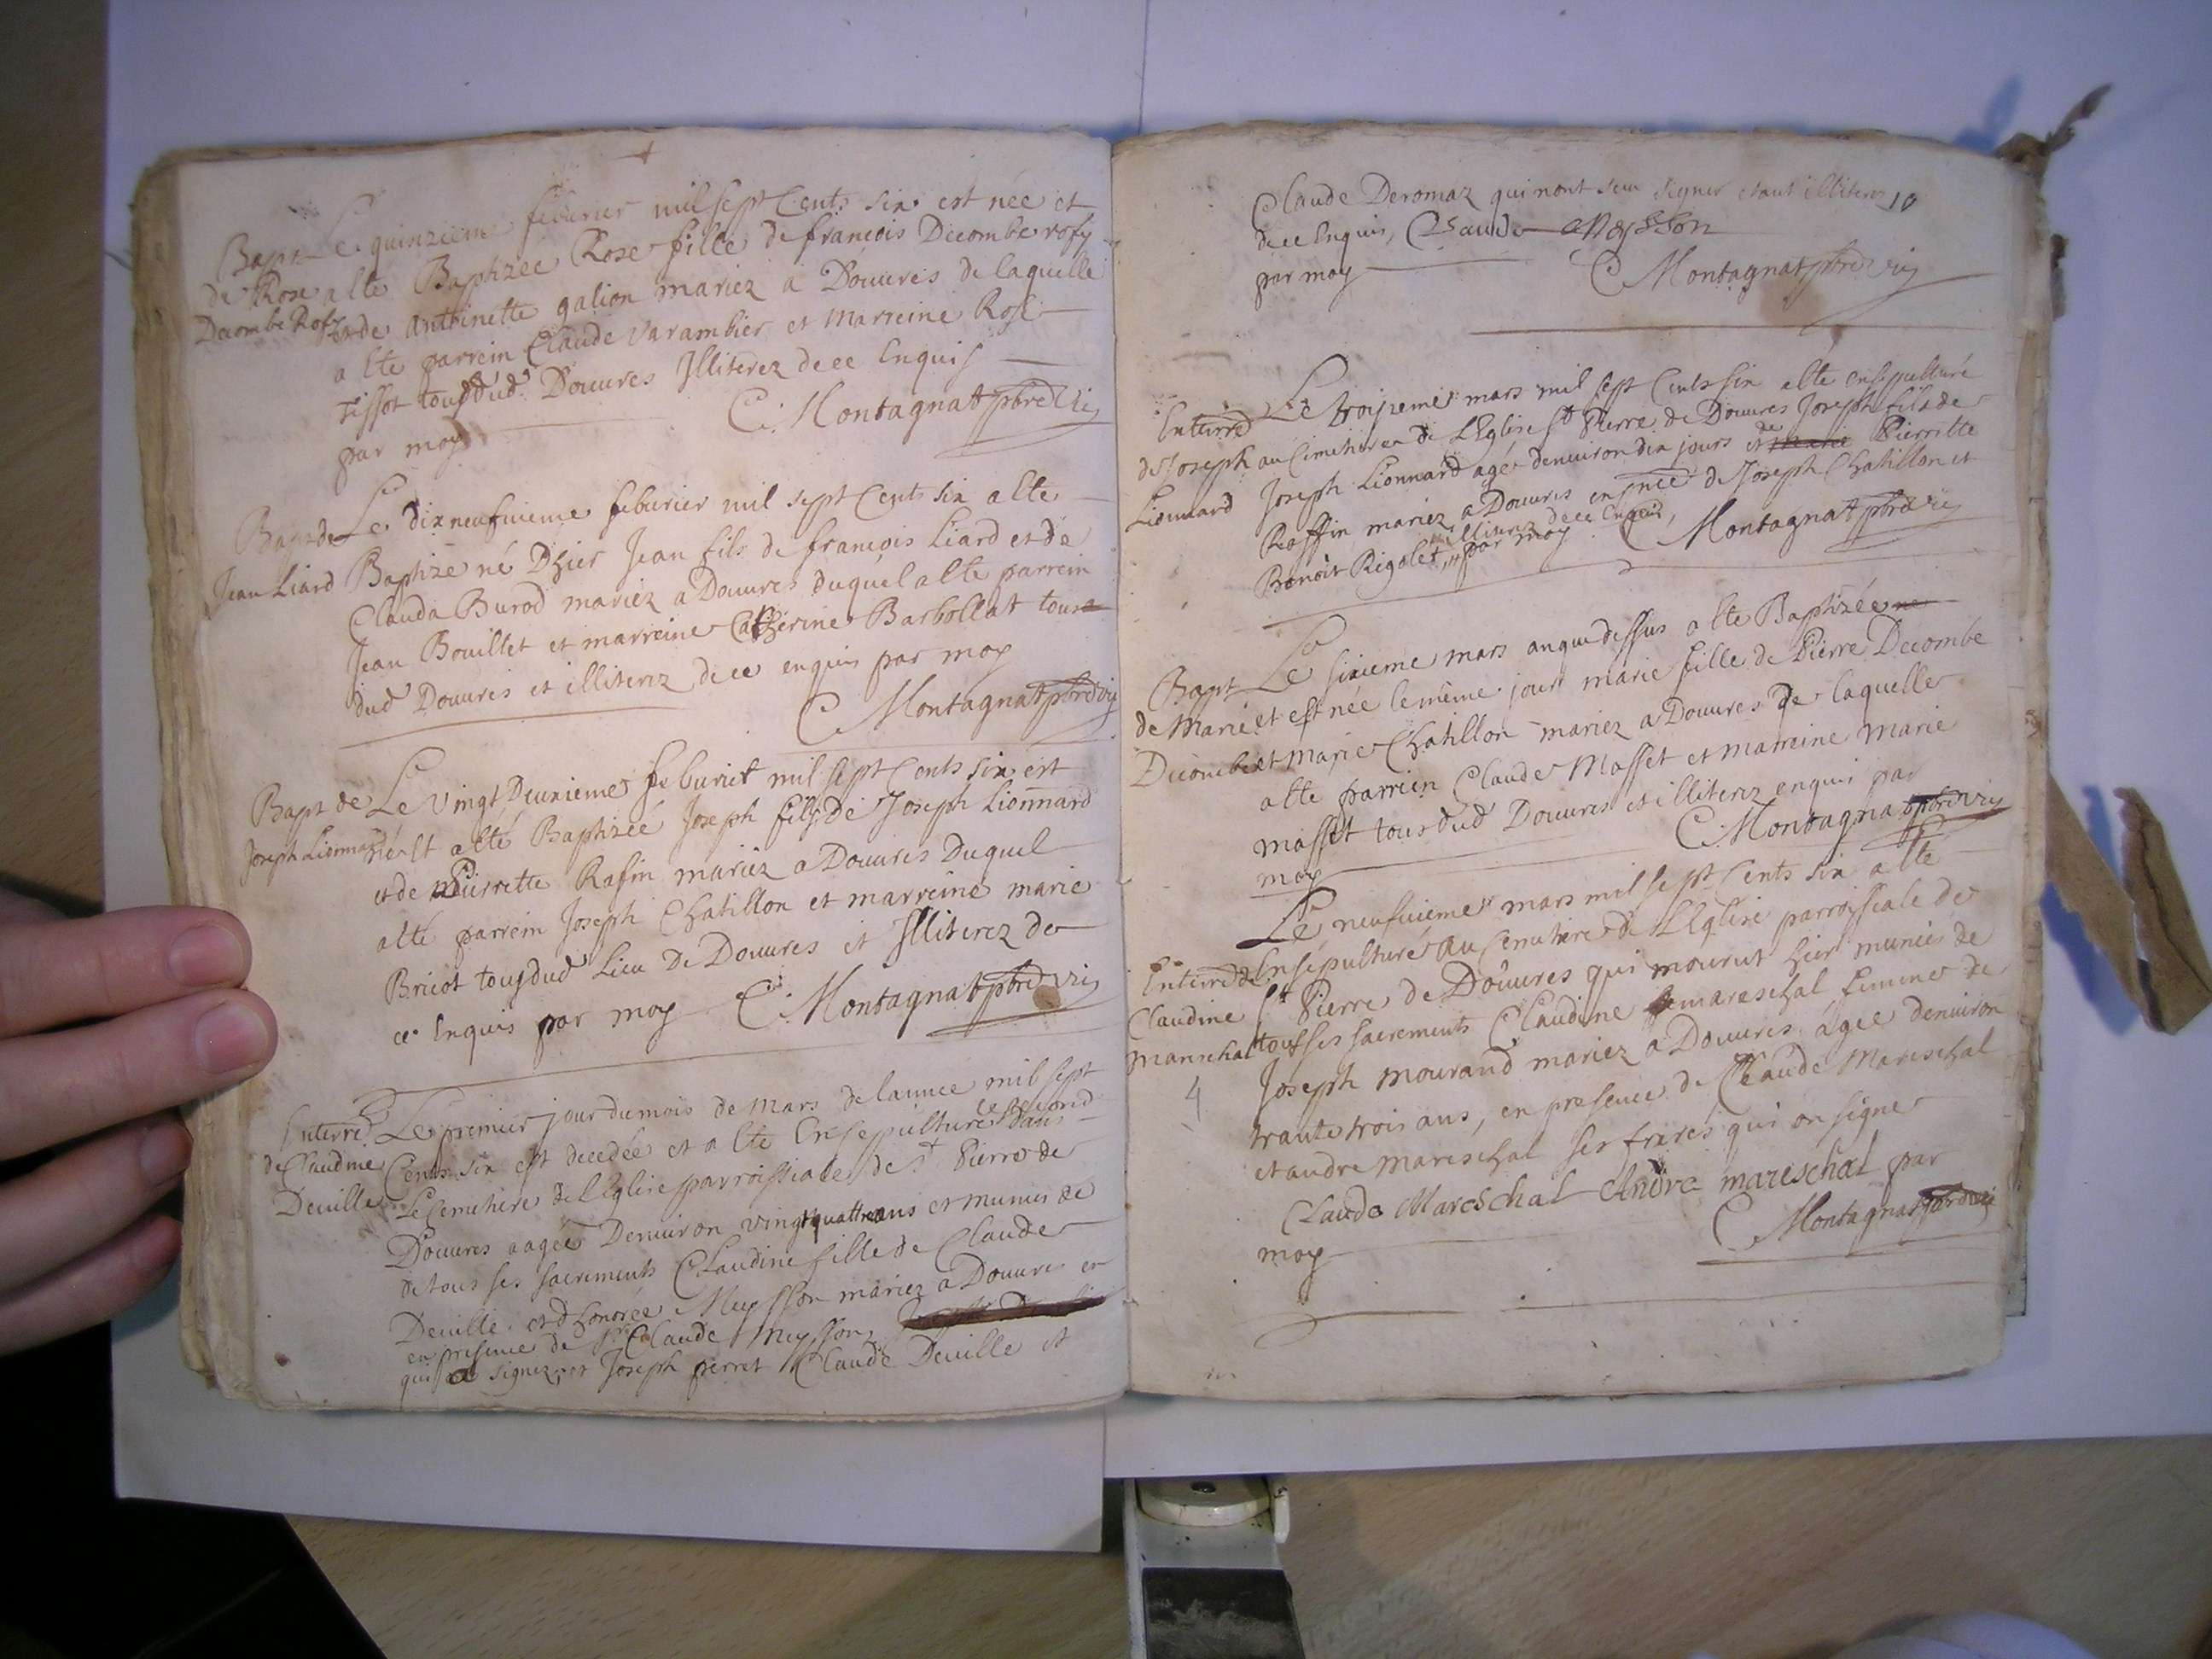 Bapt
de Rose
Decombe Rofy
Le quinzieme feburier mil sept Cents six est née et
a lte Baptizee Rose fille de francois Decombe rofy
et de antoinette galion mariez a Douures de laquelle
a lte parrein Claude Varambier et marreine Rose
Tissot tous dud Douures Illiterez de ce Enquis
par moy C. Montagnat pbre vic
Bapt de
Jean Liard
Le dixneufuieme feburier mil sept Cents six a lte
Baptize né Dhier Jean fils de françois Liard et de
Clauda Burod mariez a Douures duquel a lte parrein
Jean Bouillet et marreine Catherine Barbollat tous
dud Douures et illiterez de ce enquis par moy
C Montagnat pbre vic
Bapt de
Joseph Lionnard
Le vingt Deuxieme feburier mil sept Cents six est
né et a lté Baptizée Joseph fils de Joseph Lionnard
et de Pierrette Rafin mariez a Douures Duquel
a lté parrein Joseph Chatillon et marreine marie
Bricot tous dud Lieu De Douures et Illiterez de
ce Enquis par moy C. Montagnat pbre vic
Enterré
de Claudine
Deuille
Le premier jour du mois de Mars de lannee mil sept
Cents six est decedée et a lte Ensepulturée le second dans
Le Cemetiere de lEglise parroissiale de St Pierre de
Douures aagée Denuiron vingt quattre ans et munie de
de tous ses sacrements Claudine fille de Claude
Deuille et dhonorée Meysson mariez a Douures en
en presence de Sr Claude Meysson
qui a signez, et Joseph perret Claude Deuille et
10
Claude Deromaz qui nont sceu signer etant illiterez
de ce Enquis, Claude Meysson
par moy C Montagnat pbre vic
Enterré
de Joseph
Lionnard
Le troisieme mars mil sept Cents six a lte ensepulturé
au Cimetiere de LEglise St Pierre de Douures Joseph fils de
Joseph Lionnard agée denuiron dix jours et de marie Pierrette
Roffin mariez a Douures en pnce de Joseph Chatillon et
Benoit Rigolet, illiterez de ce Enquis, par moy C Montagnat pbre vic
Bapt
de Marie
Decombe
Le sixieme mars an que dessus a lte Baptizée ne
et est née le même jour marie fille de Pierre Decombe
et marie Chatillon mariez a Douures De laquelle
a lte parrien Claude Masset et marreine Marie
masset tous dud Douures et illiterez enquis par
moy C Montagnat pbre vic
Enterré de
Claudine
Mareschal
4
Le neufuieme mars mil sept Cents six a lté
Ensepulturé au Cemetiere de LEglise parroissiale de
St Pierre de Douures qui mourut hier munies de
tous ses sacrements Claudine mareschal femme de
Joseph Mourand mariez a Douures agee denuiron
trante trois ans, en presence de Claude Mareschal
et andre Mareschal ses freres qui on signe
Claude Mareschal Andre mareschal par
moy C Montagnat pbre vic